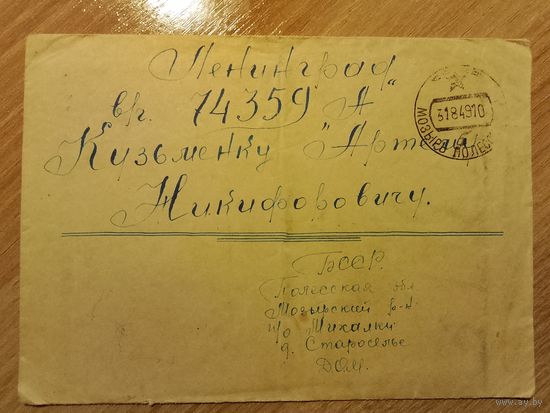 Ленинград
в/г. 74359 "А"
Кузьменку "Артёму
Никифоровичу.
МОЗЫРЬ ПОЛЕС
3184910
БССР.
Полесская обл
Мозырский р-н
п/о Михалки
д. Староселье
ДОМ.
www.ay.by